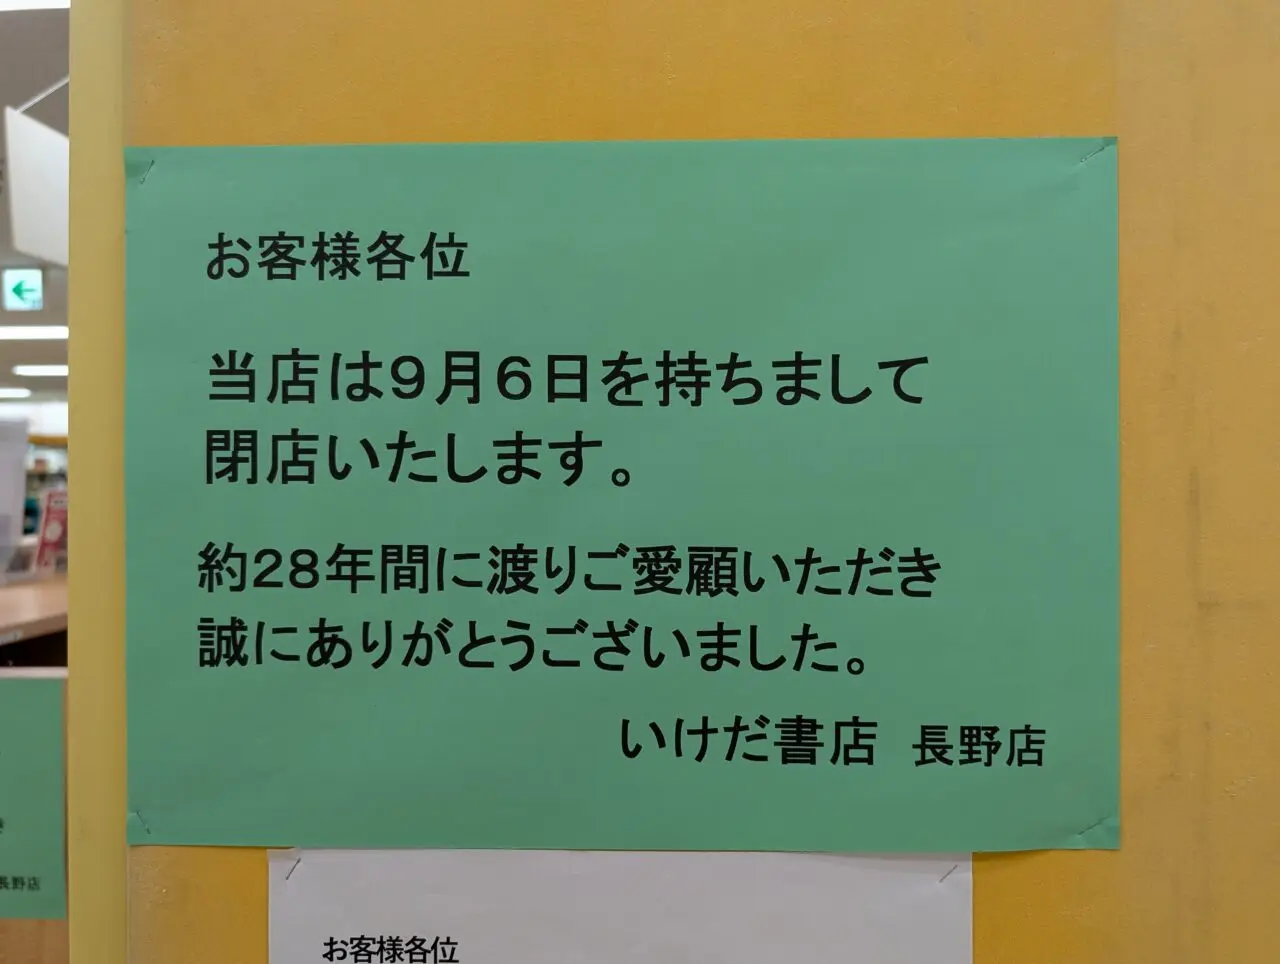 お客様各位
当店は９月６日を持ちまして
閉店いたします。
約２８年間に渡りご愛顧いただき
誠にありがとうございました。
いけだ書店 長野店
お客様各位
長野店